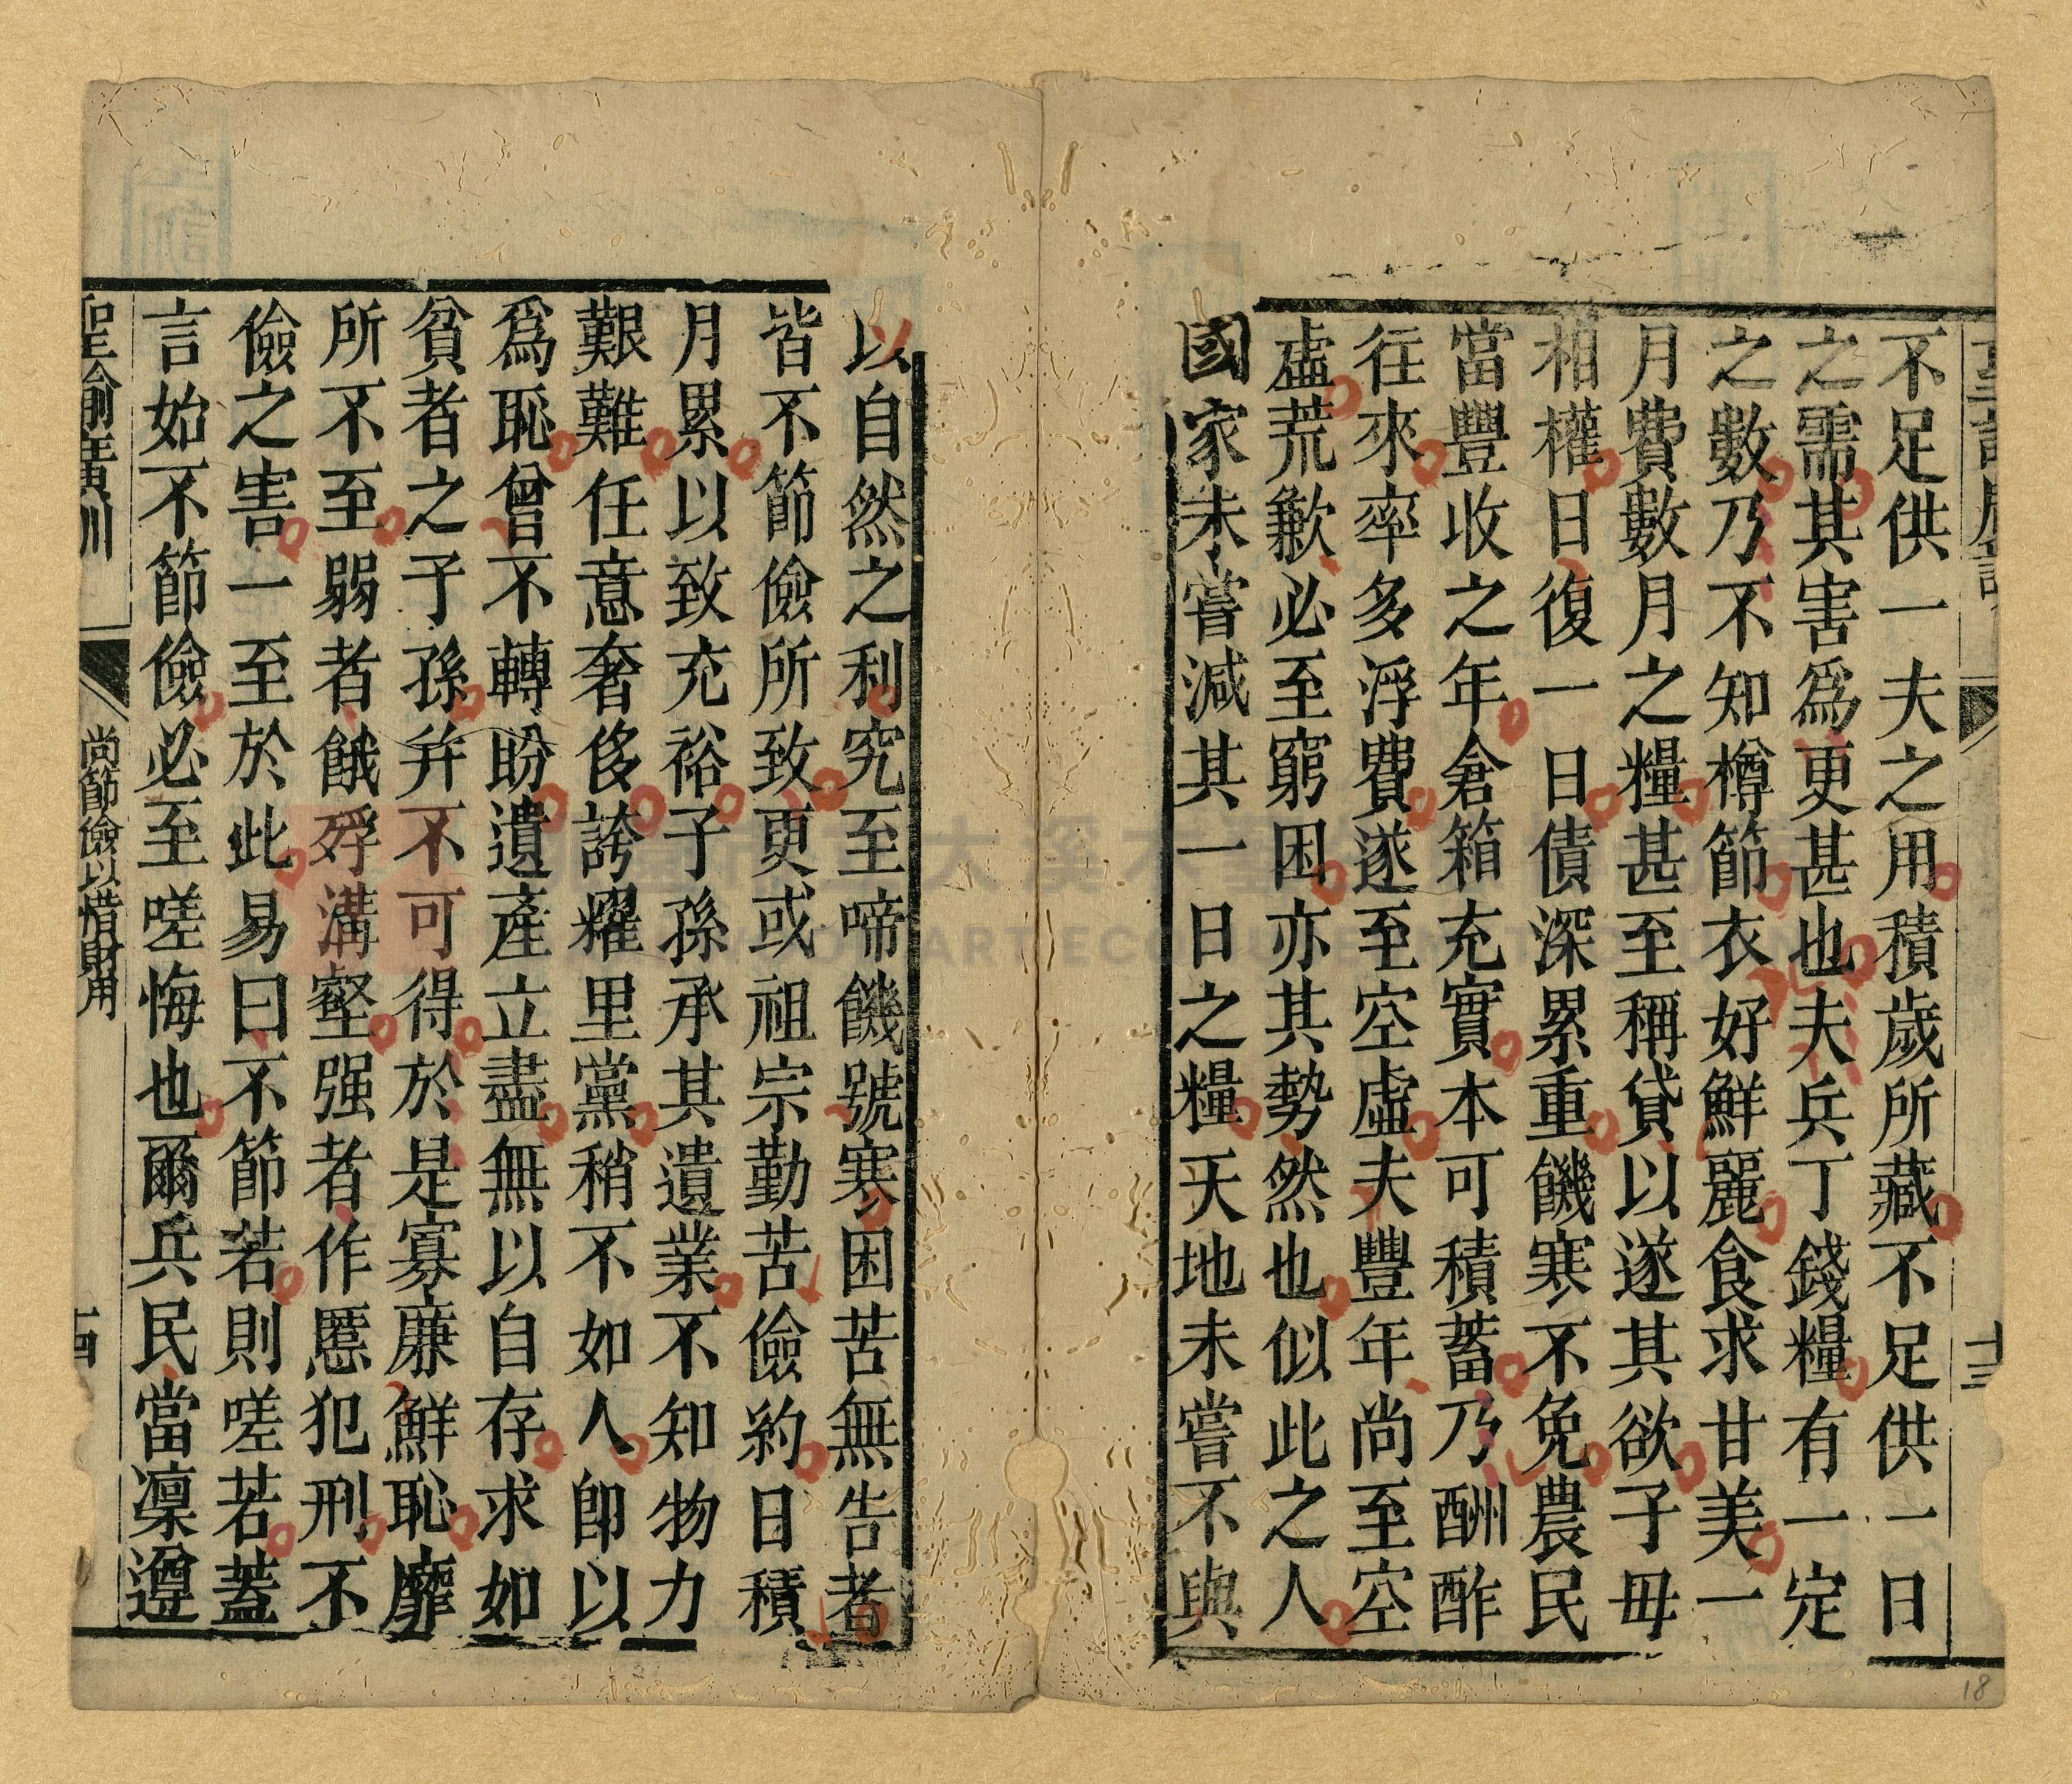 聖諭廣訓
十三
不足供一夫之用積歲所藏不足供一日
之需其害爲更甚也夫兵丁錢糧有一定
之數乃不知樽節衣好鮮麗食求甘美一
月費數月之糧甚至稱貸以遂其欲子毋
相權日復一日債深累重饑寒不免農民
當豐收之年倉箱充實本可積蓄乃酬酢
往來率多浮費遂至空虛夫豐年尚至空
虛荒歉必至窮困亦其勢然也似此之人
國家未嘗減其一日之糧天地未嘗不與
以自然之利究至啼饑號寒困苦無告者
皆不節儉所致更或祖宗勤苦儉約日積
月累以致充裕子孫承其遺業不知物力
艱難任意奢侈誇耀里黨稍不如人卽以
爲恥曾不轉盼遺產立盡無以自存求如
貧者之子孫并不可得於是寡廉鮮恥靡
所不至弱者餓殍溝壑强者作慝犯刑不
儉之害一至於此易曰不節若則嗟若蓋
言始不節儉必至嗟悔也爾兵民當凜遵
聖諭廣訓
尚節儉以惜財用
十四
18